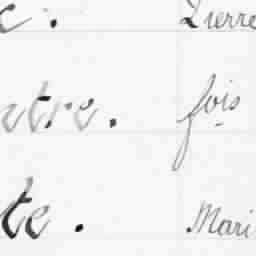 c. Pierre
ntre. fois
te. Mari